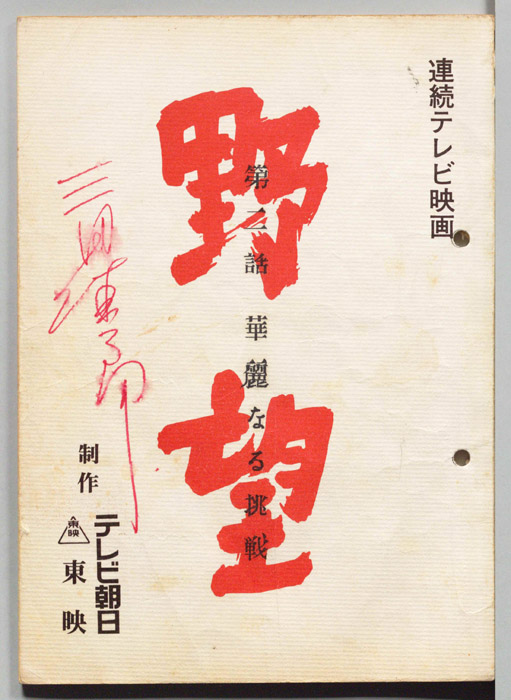 連続テレビ映画
野望
第二話 華麗なる挑戦
制作
テレビ朝日
東映
東映